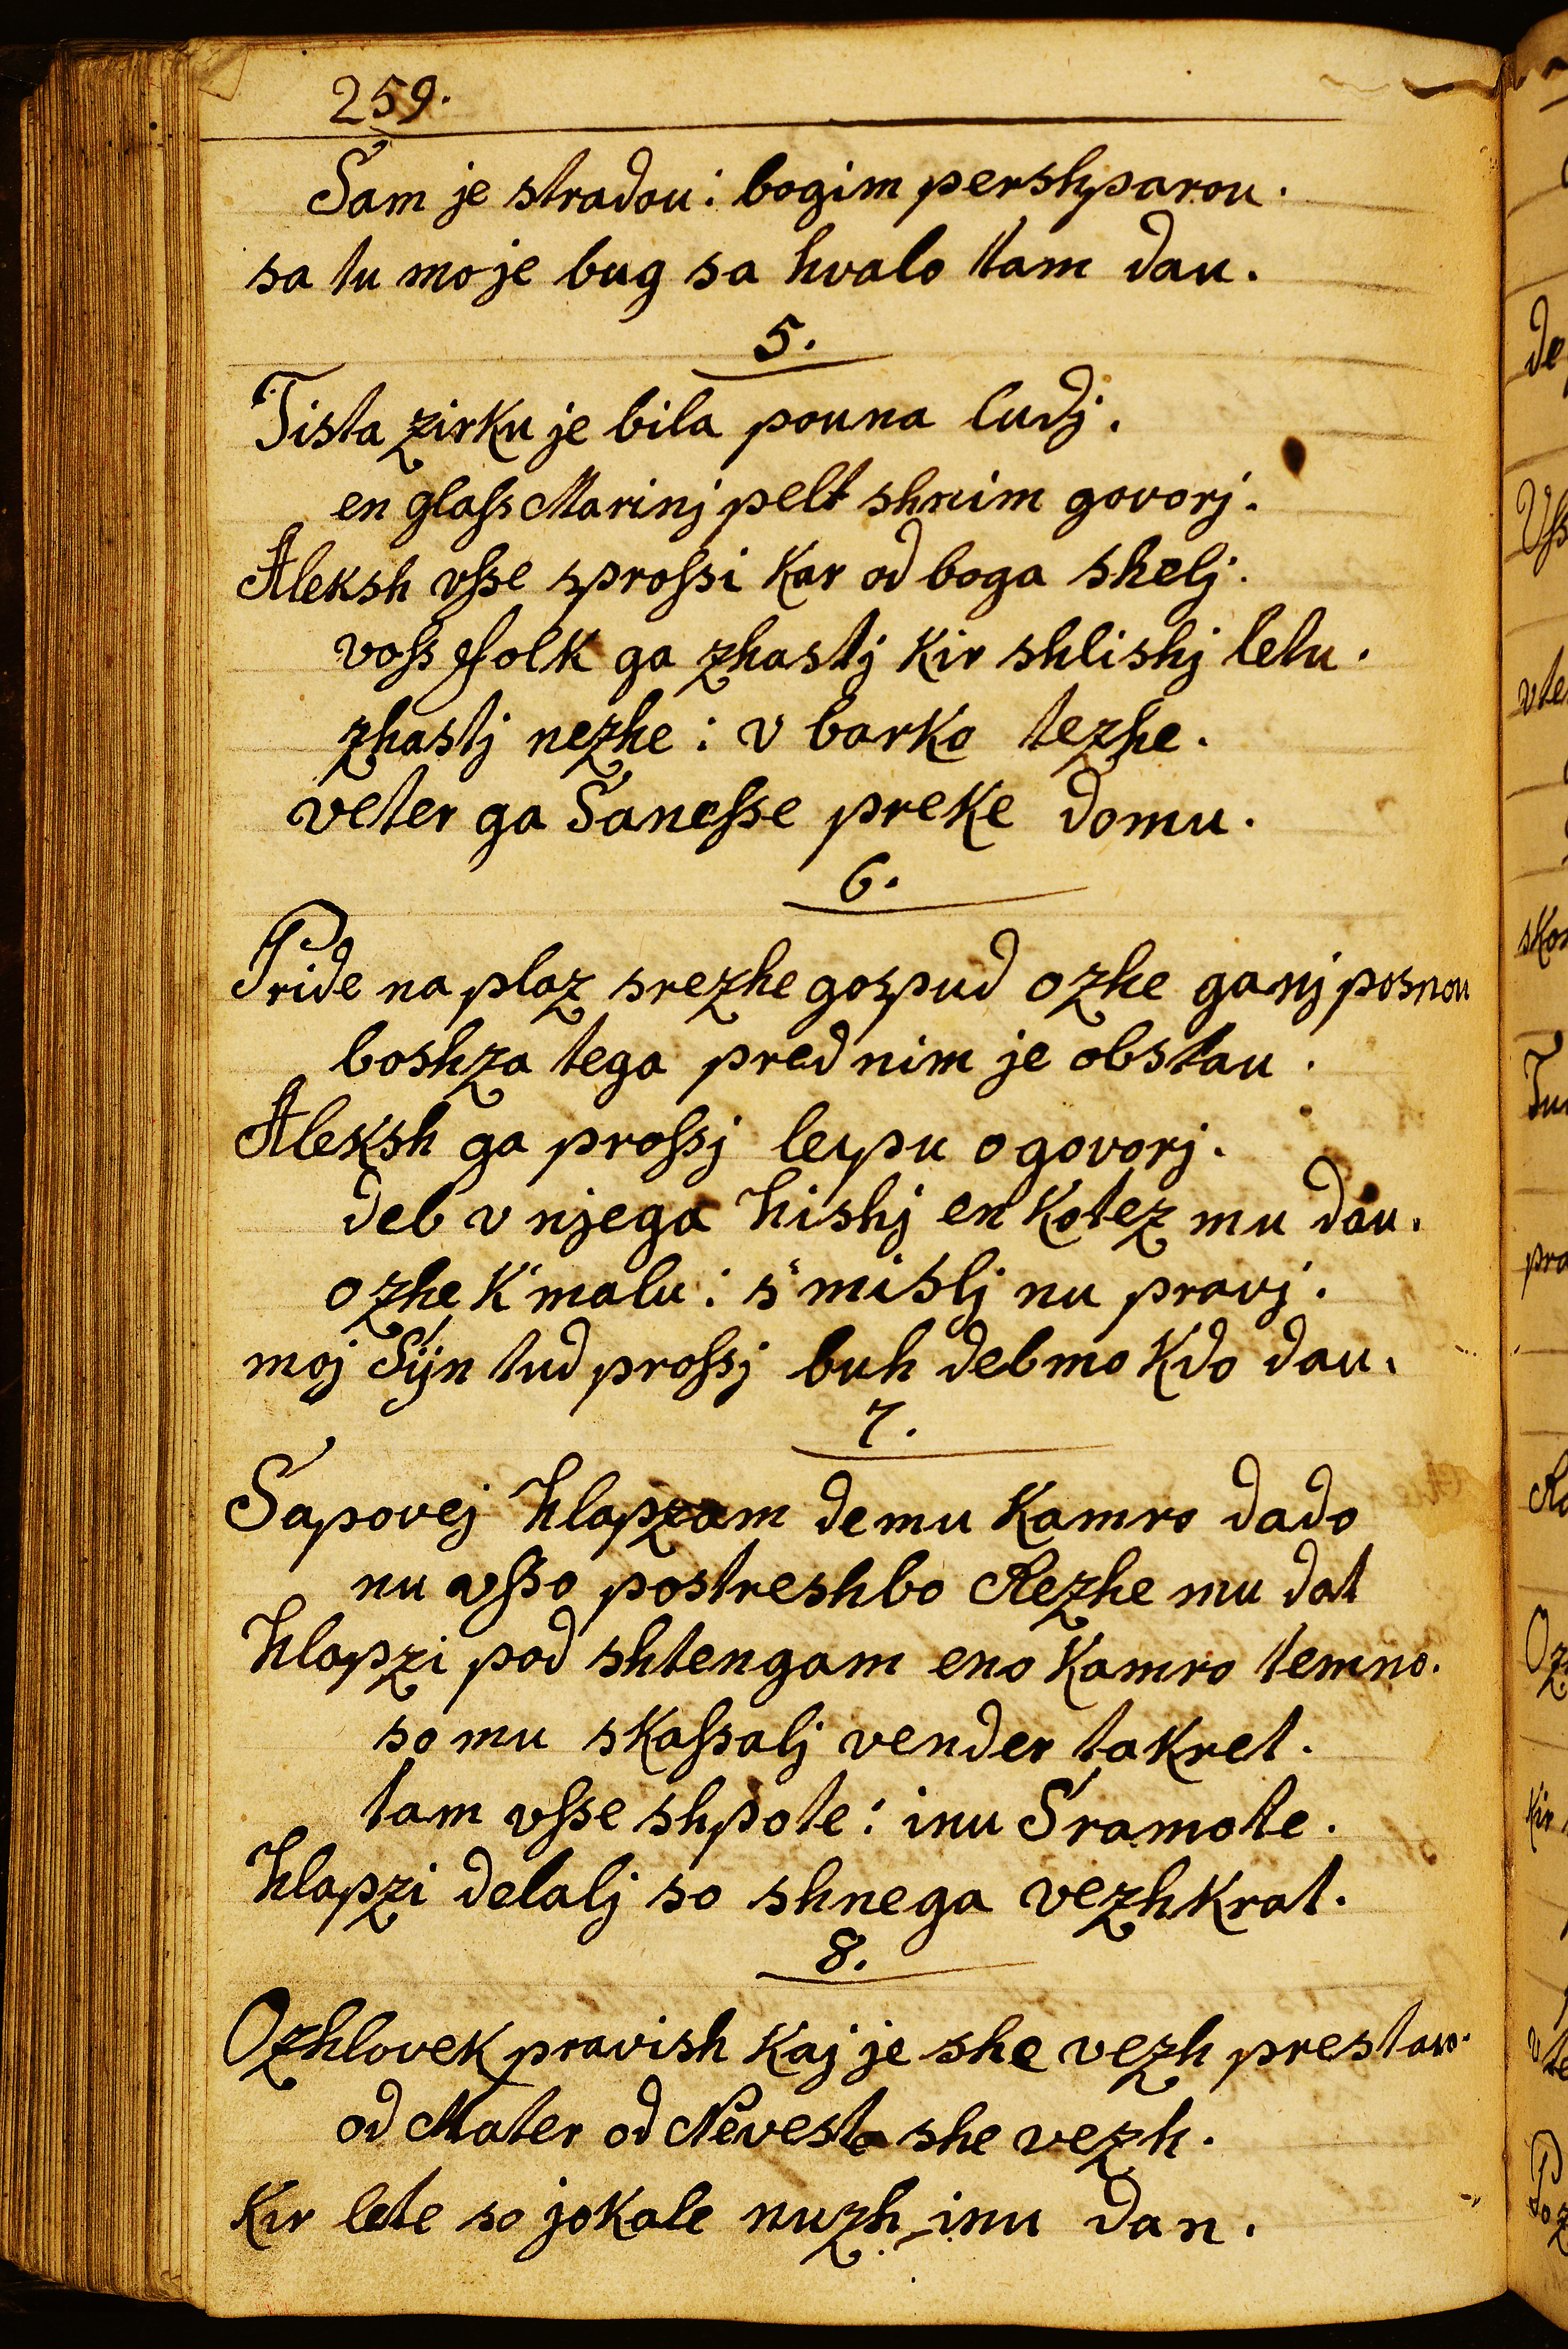 259.
Sam je stradou: bogim pershparou.
sa tu mo je bug sa hvalo tam dau.
5.
Tista zirku je bila pouna ludj.
en glaſs Marinj pelt shnim govorj.
Aleksh vſse sproſsi kar od boga shelj.
voſs folk ga zhastj kir shlishj letu.
zhastj nezhe: v barko tezhe.
veter ga Saneſse preke domu.
6.
Pride na plaz srezhe gospud ozhe ga nj posnou
boshza tega pred nim je obstau.
Aleksh ga proſsj leipu ogovorj.
deb v njega hishj en kotez mu dau.
ozhe k'malu: s'mislj nu pravj.
moj Sijn tud proſsj buh deb mo kdo dau.
7.
Sapovej hlapzam de mu kamro dado
nu vſso postreshbo Rezhe mu dat
hlapzi pod shtengam eno kamro temno.
so mu skaſsalj vender takret.
tam vſse shpote: inu Sramote.
hlapzi delalj so shnega vezhkrat.
8.
Ozhlovek pravish kaj je she vezh prestavo.
od Mater od Neveste she vezh.
kir lete so jokale nuzh inu dan.